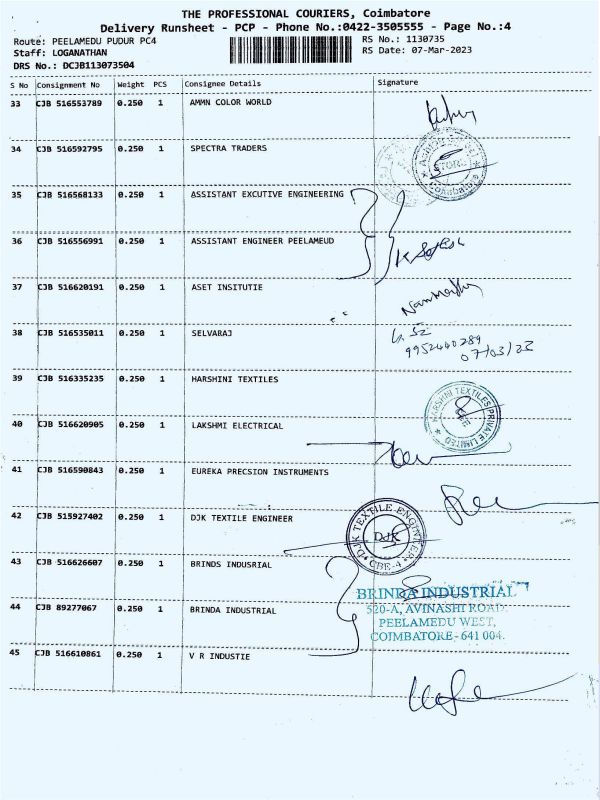 THE PROFESSIONAL COURIERS, Coimbatore
Delivery Runsheet - PCP - Phone No.:0422-3505555 - Page No.:4
Route: PEELAMEDU PUDUR PC4
RS No.: 1130735
Staff: LOGANATHAN
RS Date: 07-Mar-2023
DRS No.: DCJB113073504
S No Consignment No Weight PCS Consignee Details Signature
33 CJB 516553789 0.250 1 AMMN COLOR WORLD
34 CJB 516592795 0.250 1 SPECTRA TRADERS
STORE
Coimbatore
35 CJB 516568133 0.250 1 ASSISTANT EXCUTIVE ENGINEERING
36 CJB 516556991 0.250 1 ASSISTANT ENGINEER PEELAMEUD
37 CJB 516620191 0.250 1 ASET INSITUTIE
38 CJB 516535011 0.250 1 SELVARAJ
9952440289
07/03/23
39 CJB 516335235 0.250 1 HARSHINI TEXTILES
HARSHINI TEXTILES PRIVATE LIMITED
40 CJB 516620905 0.250 1 LAKSHMI ELECTRICAL
41 CJB 516590843 0.250 1 EUREKA PRECSION INSTRUMENTS
42 CJB 515927402 0.250 1 DJK TEXTILE ENGINEER
DJK TEXTILE ENGINEER
DJK
CBE-4
43 CJB 516626607 0.250 1 BRINDS INDUSRIAL
BRINDA INDUSTRIAL
520-A, AVINASHI ROAD.
PEELAMEDU WEST,
COIMBATORE- 641 004.
44 CJB 89277067 0.250 1 BRINDA INDUSTRIAL
45 CJB 516610861 0.250 1 V R INDUSTIE